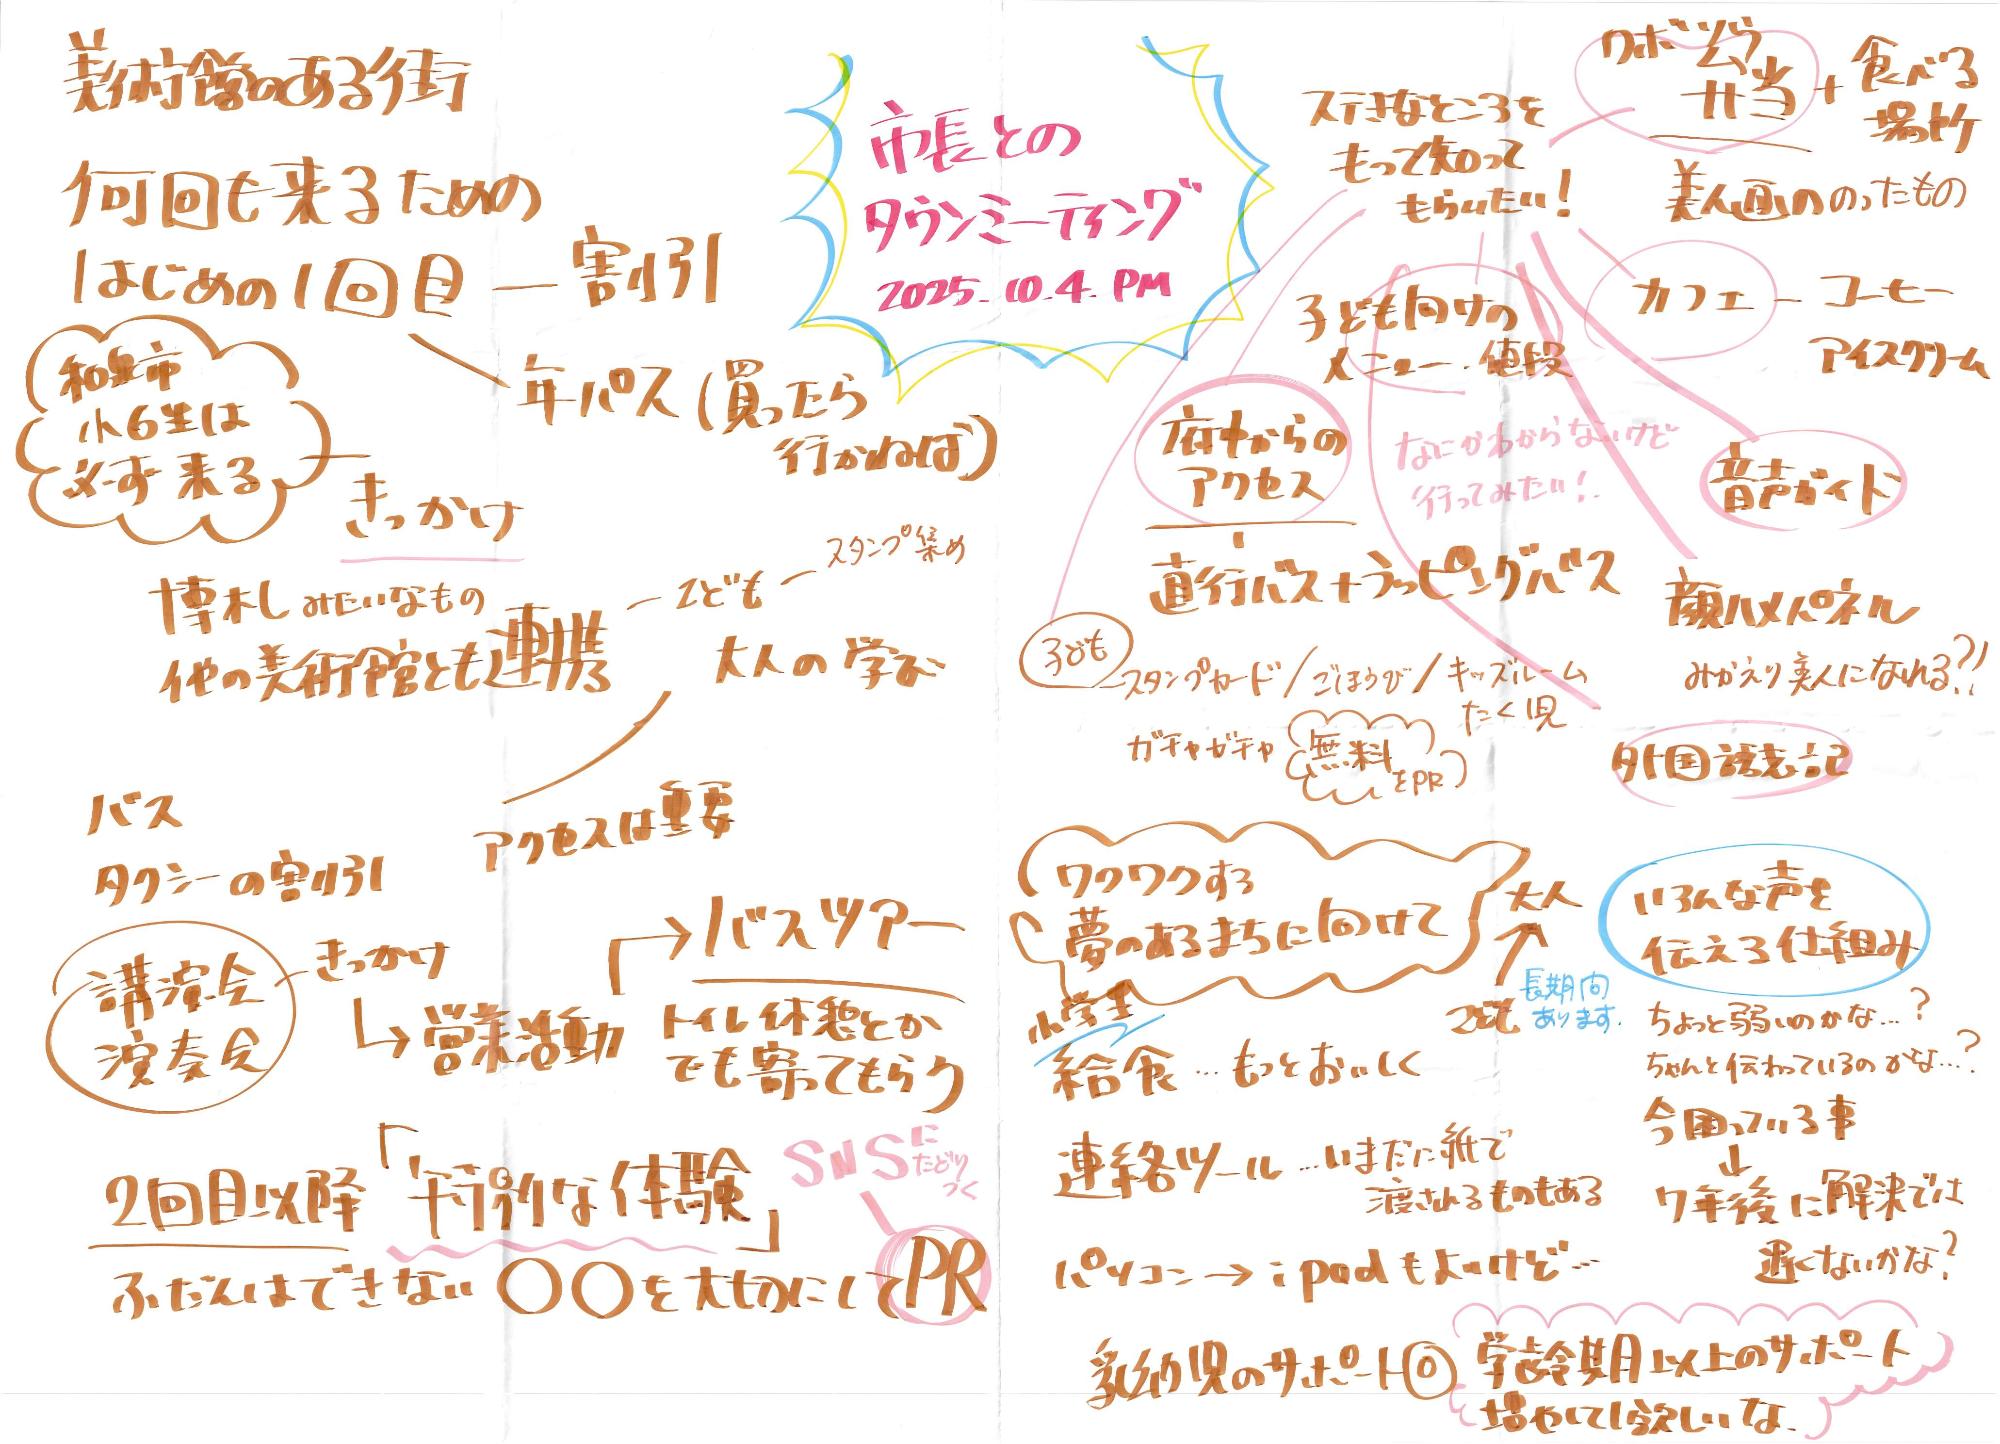 美術館のある街
何回も来るための
はじめの1回目 ― 割引
年パス(買ったら
行かねば)
和泉市
小6生は
必ず来る
きっかけ
博札しみたいなもの
他の美術館とも連携
こども ― スタンプ集め
大人の学び
バス
タクシーの割引
アクセスは重要
講演会
演奏会
きっかけ
営業活動
バスツアー
トイレ休憩とか
でも寄ってもらう
2回目以降「特別な体験」
ふだんはできない〇〇を大切にしてPR
SNSに
たどり
つく
市長との
タウンミーティング
2025.10.4.PM
ステきなところを
もって知って
もらいたい!
クボソウ
弁当+食べる
場所
美人画ののったもの
カフェ ― コーヒー
アイスクリーム
子ども向けの
メニュー・値段
府中からの
アクセス
直行バス+ラッピングバス
なにかわからないけど
行ってみたい!
音声ガイド
顔ハメパネル
みかえり美人になれる?!
外国語表記
子ども
スタンプカード/ごほうび/キッズルーム
たく児
ガチャガチャ
無料
をPR
ワクワクする
夢のあるまちに向けて
大人
こども
長期間
あります.
小学生
給食…もっとおいしく
連絡ツール…いまだに紙で
渡されるものもある
パソコン→ipadもよいけど…
乳幼児のサポート◎
学齢期以上のサポート
増やして欲しいな.
いろんな声を
伝える仕組み
ちょっと弱いのかな…?
ちゃんと伝わっているのかな…?
今困っている事
↓
7年後に解決では
遅くないかな?